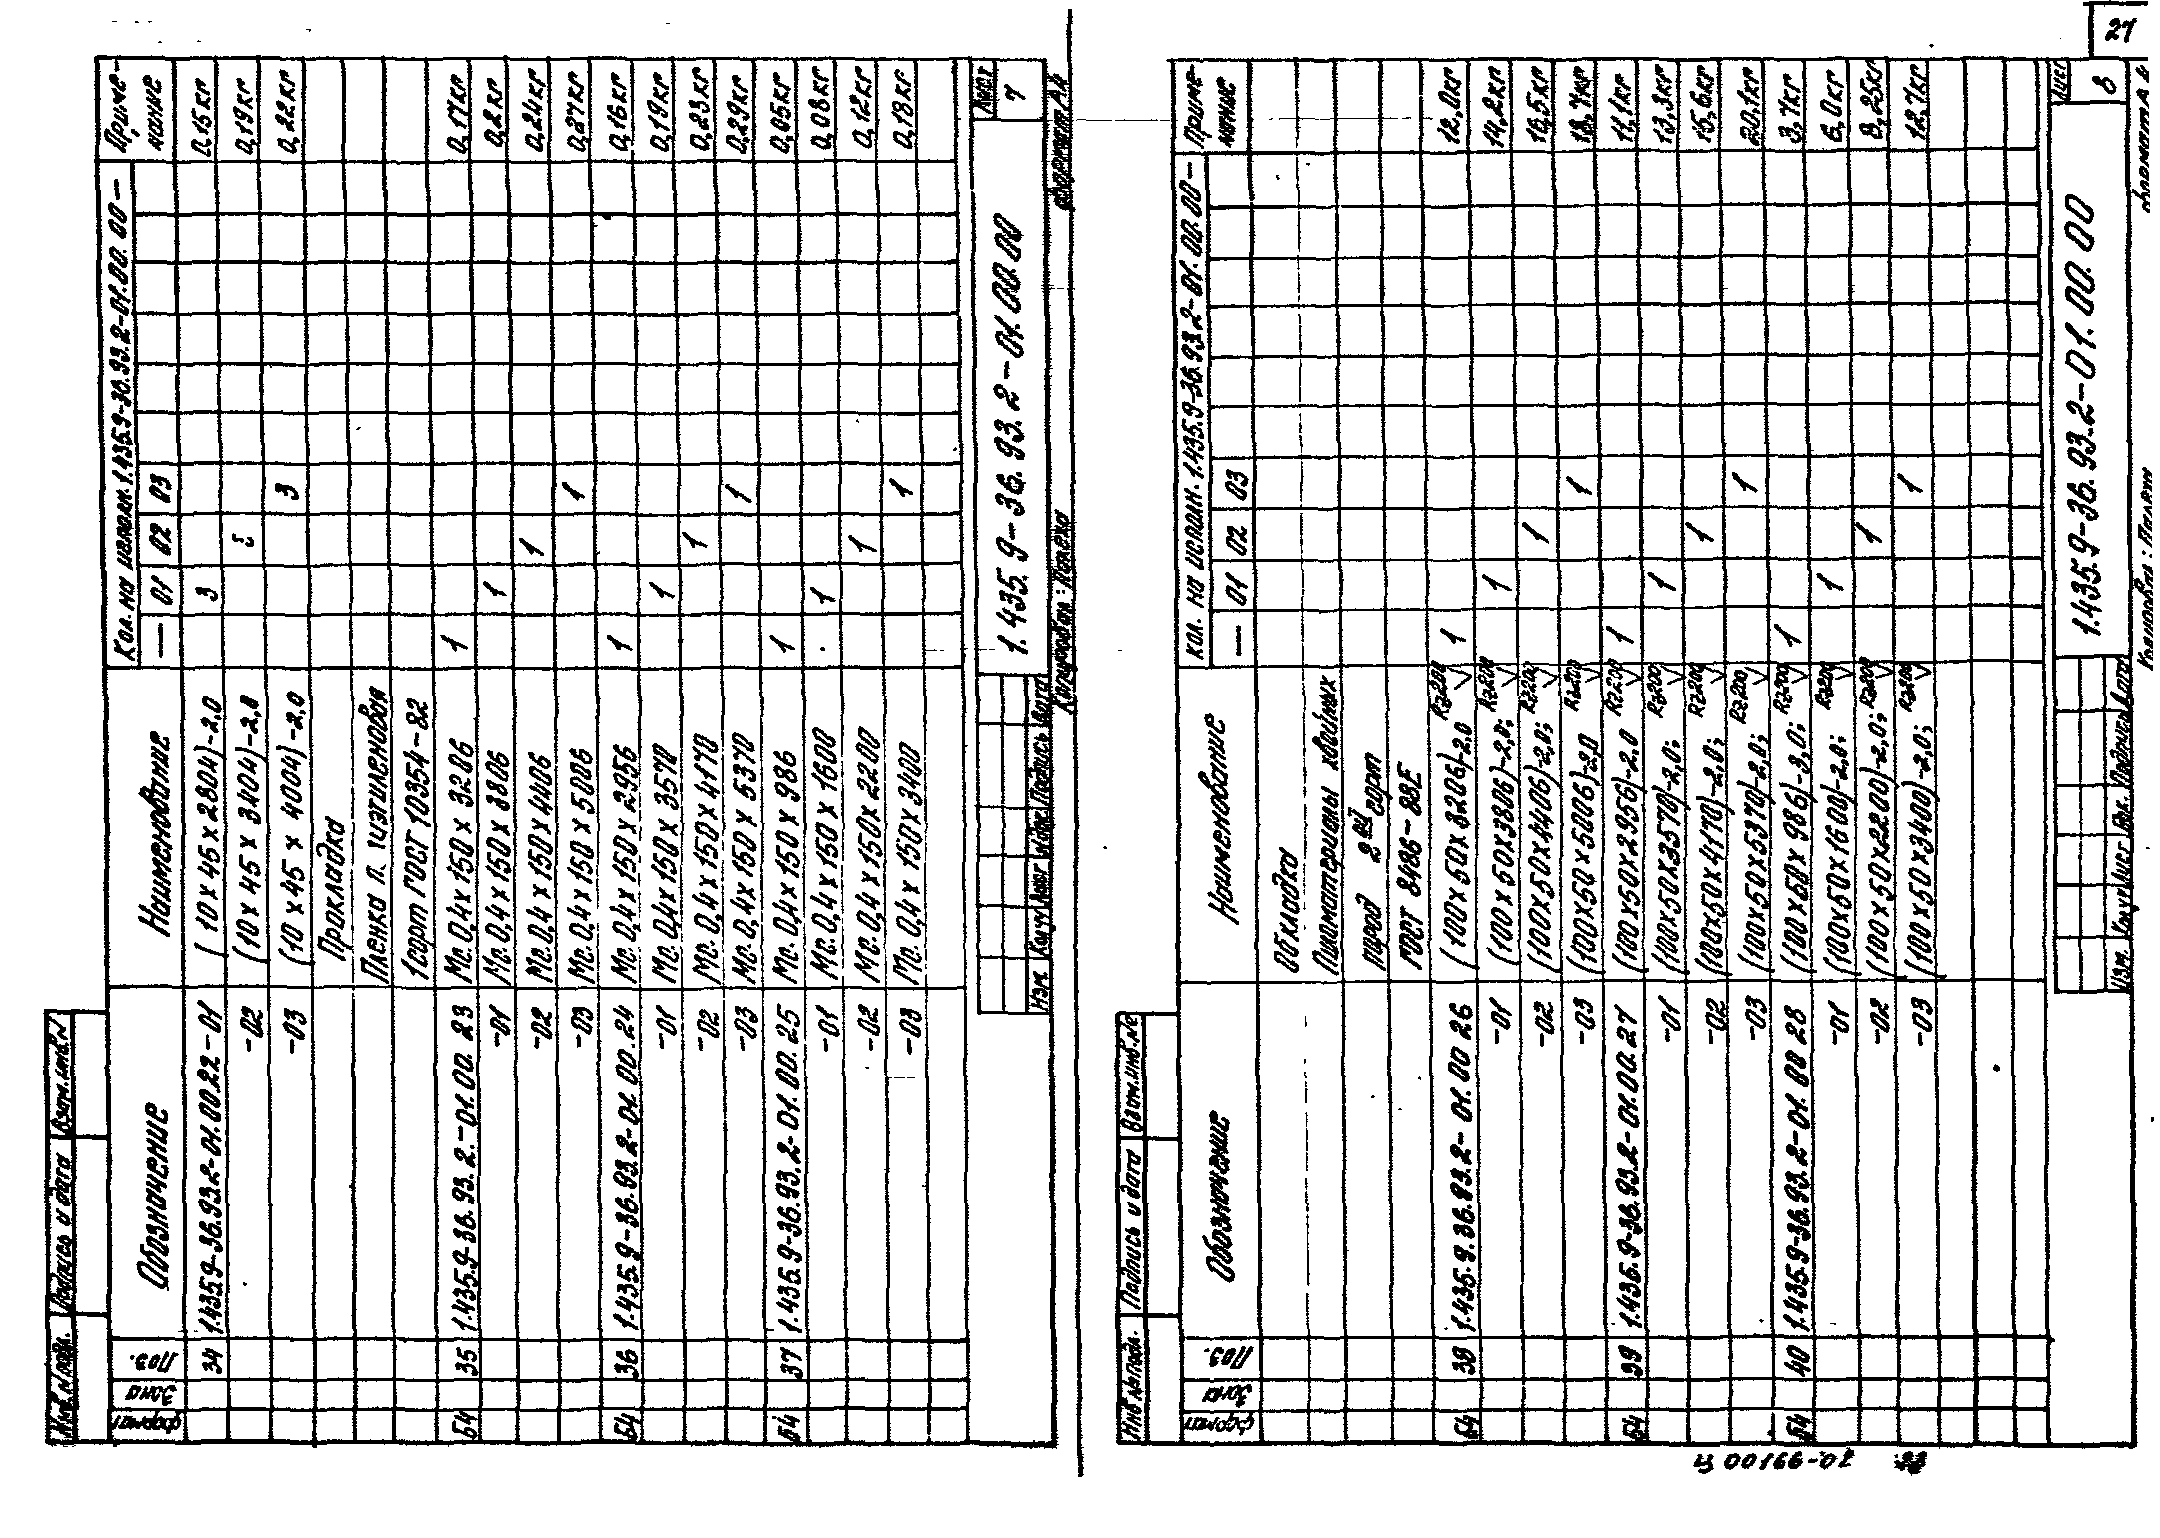 27
Обозначение Наименование Кол. на исполн. 1.435.9-36.93.2-01.00.00- Приме-
Формат Зона Поз. — 01 02 03 чание
34 1.435.9-36.93.2-01.00.22-01 (10×45×2804)-2,0 3 0,15кг
-02 (10×45×3404)-2,0 0,19кг
-03 (10×45×4004)-2,0 3 0,22кг
Прокладка
Пленка полиэтиленовая
1сорт ГОСТ 10354-82
Б4 35 1.435.9-36.93.2-01.00.23 Мс.0,4×150×3206 1 0,17кг
-01 Мс.0,4×150×3806 1 0,2кг
-02 Мс.0,4×150×4406 1 0,24кг
-03 Мс.0,4×150×5006 1 0,27кг
Б4 36 1.435.9-36.93.2-01.00.24 Мс.0,4×150×2956 1 0,16кг
-01 Мс.0,4×150×3570 1 0,19кг
-02 Мс.0,4×150×4170 1 0,23кг
-03 Мс.0,4×150×5370 1 0,29кг
Б4 37 1.435.9-36.93.2-01.00.25 Мс.0,4×150×986 1 0,05кг
-01 Мс.0,4×150×1600 1 0,08кг
-02 Мс.0,4×150×2200 1 0,12кг
-03 Мс.0,4×150×3400 1 0,18кг
1.435.9-36.93.2-01.00.00
Лист
7
Изм. Кол.уч Лист №док. Подпись Дата
Копировал: Формат А4
Инв.№подл. Подпись и дата Взам.инв.№
Обозначение Наименование Кол. на исполн. 1.435.9-36.93.2-01.00.00- Приме-
Формат Зона Поз. — 01 02 03 чание
Обкладка
Пиломатериалы хвойных
пород 2ой сорт
ГОСТ 8486-88Е
Б4 38 1.435.9-36.93.2-01.00 26 (100×50×3206)-2.0 Rz200 1 12,0кг
-01 (100×50×3806)-2,0; Rz200 1 14,2кг
-02 (100×50×4406)-2,0; Rz200 1 16,5кг
-03 (100×50×5006)-2,0 Rz200 1 18,7кг
Б4 39 1.435.9-36.93.2-01.00.27 (100×50×2956)-2.0 Rz200 1 11,1кг
-01 (100×50×3570)-2,0; Rz200 1 13,3кг
-02 (100×50×4170)-2,0; Rz200 1 15,6кг
-03 (100×50×5370)-2,0; Rz200 1 20,1кг
Б4 40 1.435.9-36.93.2-01.00 28 (100×50×986)-2,0; Rz200 1 3,7кг
-01 (100×50×1600)-2,0; Rz200 1 6,0кг
-02 (100×50×2200)-2,0; Rz200 1 8,25кг
-03 (100×50×3400)-2,0; Rz200 1 12,7кг
1.435.9-36.93.2-01.00.00
Лист
8
Изм. Кол.уч Лист №док. Подпись Дата
Копировал: Формат А4
Инв.№подл. Подпись и дата Взам.инв.№
Ц00199-02